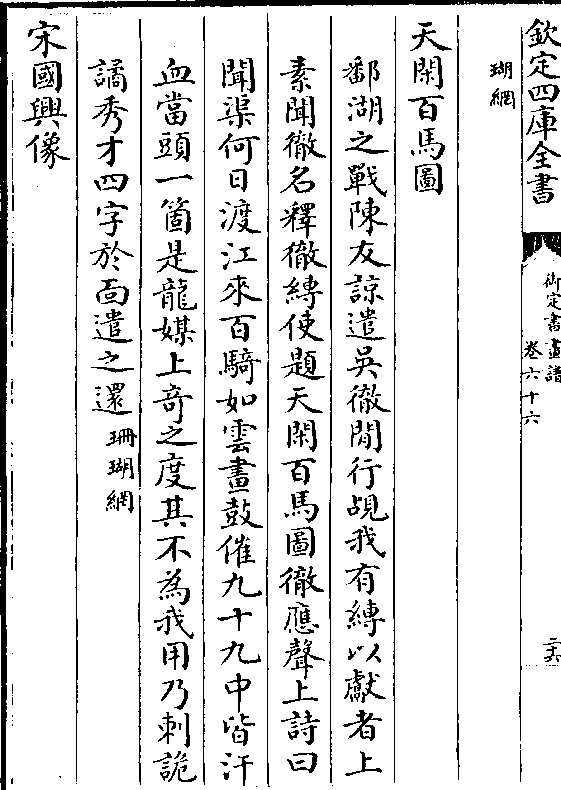 欽定四庫全書
御定書畫譜
卷六十六
二六
瑚網
天閑百馬圖
鄱湖之戰陳友諒遣吳徹閒行覘我有縛以獻者上
素聞徹名釋徹縛使題天閑百馬圖徹應聲上詩曰
聞渠何日渡江來百騎如雲畫鼓催九十九中皆汗
血當頭一箇是龍媒上奇之度其不為我用乃刺詭
譎秀才四字於面遣之還珊瑚網
宋國興像